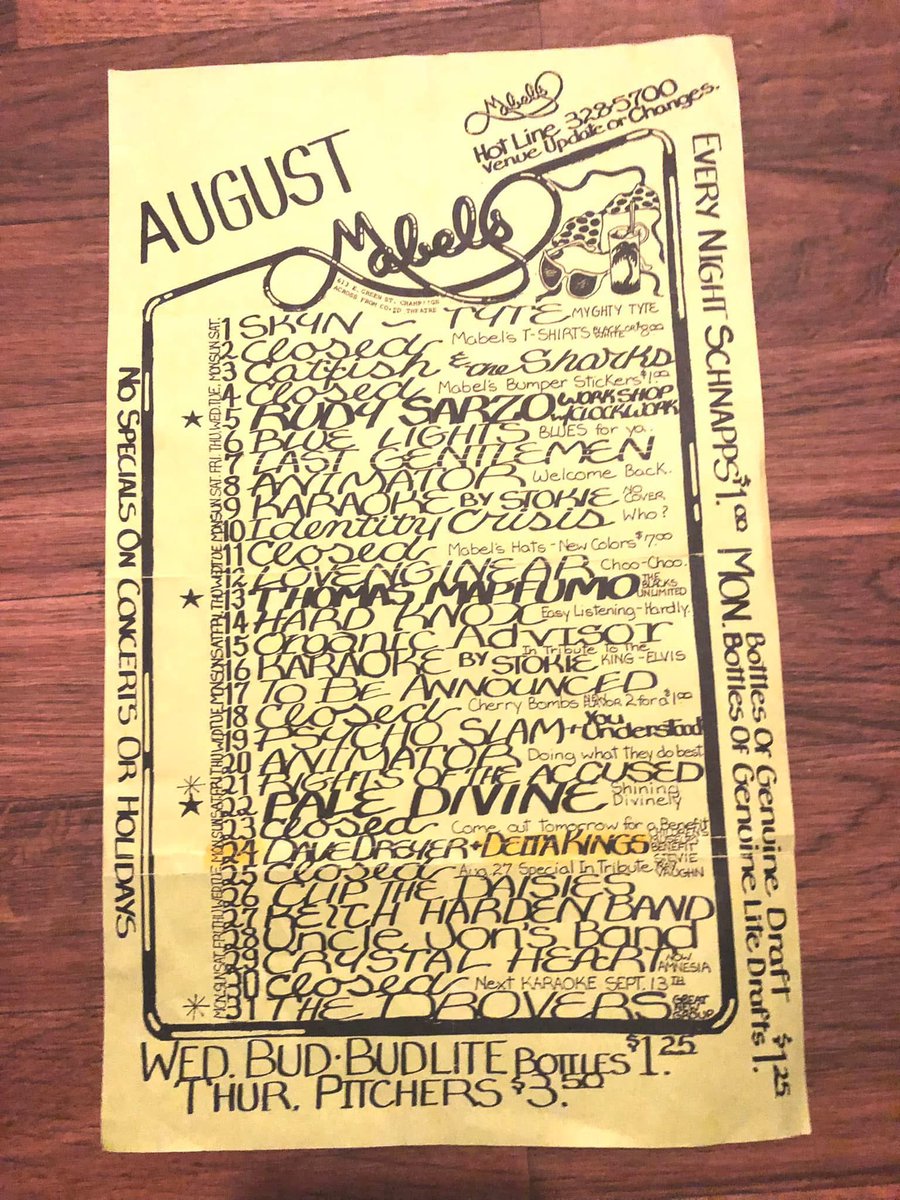 Mabels
Hot Line 328-5700
Venue Update or Changes.
AUGUST
Mabels
613 E. GREEN ST. CHAMPAIGN
ACROSS FROM CO-ED THEATRE
SAT. 1 SKYN ~ TYTE MYGHTY TYTE
SUN. 2 Closed Mabel's T-SHIRTS
MON. 3 Catfish & the Sharks
TUE. 4 Closed Mabel's Bumper Stickers $1.00
WED. 5 RUDY SARZO WORKSHOP w/CLOCKWORK
THU. 6 BLUE LIGHTS BLUES for ya.
FRI. 7 LAST GENTLEMEN
SAT. 8 ANIMATOR Welcome Back.
SUN. 9 KARAOKE BY STOKIE NO COVER
MON. 10 Identity Crisis Who?
TUE. 11 Closed Mabel's Hats - New Colors $7.00
WED. 12 LOVENGINEAR Choo-Choo.
THU. 13 THOMAS MAPFUMO THE BLACKS UNLIMITED
FRI. 14 HARD KNOX Easy Listening-Hardly.
SAT. 15 Organic Advisor
SUN. 16 KARAOKE BY STOKIE In Tribute To the KING - ELVIS
MON. 17 TO BE ANNOUNCED
TUE. 18 Closed Cherry Bombs NEW FLAVOR 2 for a $1.00
WED. 19 PSYCHO SLAM + You Understood
THU. 20 ANIMATOR Doing what they do best.
FRI. 21 RIGHTS OF THE ACCUSED
SAT. 22 PALE DIVINE Shining Divinely
SUN. 23 Closed Come out tomorrow for a Benefit
MON. 24 DAVE DREYER + DELTA KINGS BENEFIT
TUE. 25 Closed Aug. 27 Special In Tribute STEVIE RAY VAUGHN
WED. 26 CLIP THE DAISIES
THU. 27 KEITH HARDEN BAND
FRI. 28 Uncle Jon's Band
SAT. 29 CRYSTAL HEART NOW AMNESIA
SUN. 30 Closed Next KARAOKE SEPT. 13TH
MON. 31 THE DROVERS GREAT GROUP
WED. BUD · BUD LITE BOTTLES $1.25
THUR. PITCHERS $3.50
NO SPECIALS ON CONCERTS OR HOLIDAYS
EVERY NIGHT SCHNAPPS $1.00 MON. Bottles Or Genuine Draft $1.25
Bottles Of Genuine, Life Drafts $1.